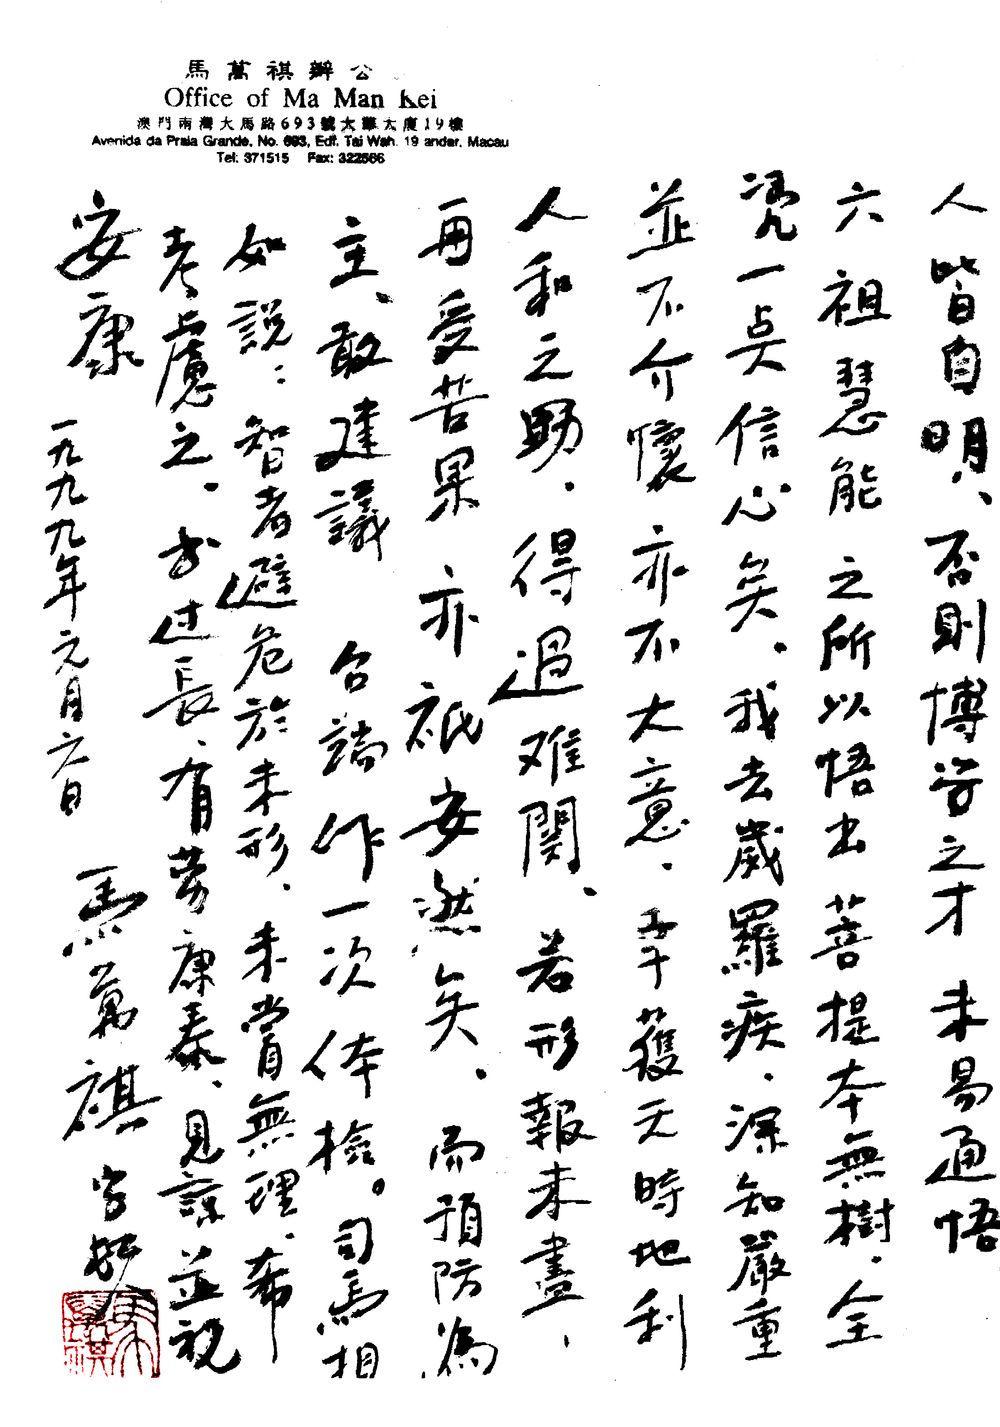 馬萬祺辦公
Office of Ma Man Kei
澳門南灣大馬路693號大華大廈19樓
Avenida da Praia Grande, No. 693, Edf. Tai Wah. 19 andar, Macau
Tel: 371515 Fax: 322566
人皆自明、否則博学之才未易通悟
六祖慧能之所以悟出菩提本無樹．全
凭一点信心矣．我去歲羅疾．深知嚴重
並不介懷亦不大意．幸獲天時地利
人和之助．得過难関、若形報未盡、
再受苦果亦祇安然矣．而預防為
主、敢建議 台端作一次体檢。司馬相
如說：智者避危於未形．未嘗無理、希
考慮之．書过長、有勞康泰、見諒並祝
安康
一九九九年元月六日
馬萬祺